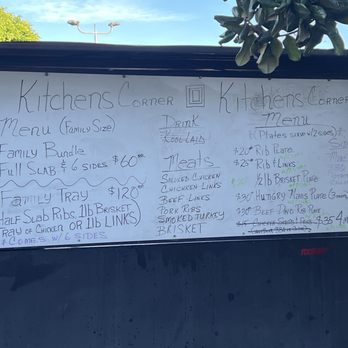 Kitchens Corner
Menu (Family Size)
Family Bundle
Full Slab & 6 Sides $60.00
Family Tray $120.00
Half Slab Ribs, 1lb Brisket
Tray of Chicken or 1lb Links)
Comes w/ 6 Sides
Drink
Kool Laid
Meats
Smoked Chicken
Chicken Links
Beef Links
Pork Ribs
Smoked Turkey
Brisket
Kitchens Corner
Menu
(Plates serve w/2 sides)
$20 Rib Plate
$25 Rib & Links
1/2 lb Brisket Plate
$30 Hungry Mans Plate
$30 Beef Dino Rib Plate
$35